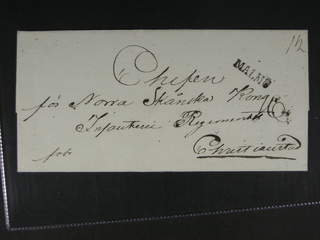 1/2
MALMÖ
Chefen
för Norra Skånska Kongl
Infanteri Regementet
Christianstad